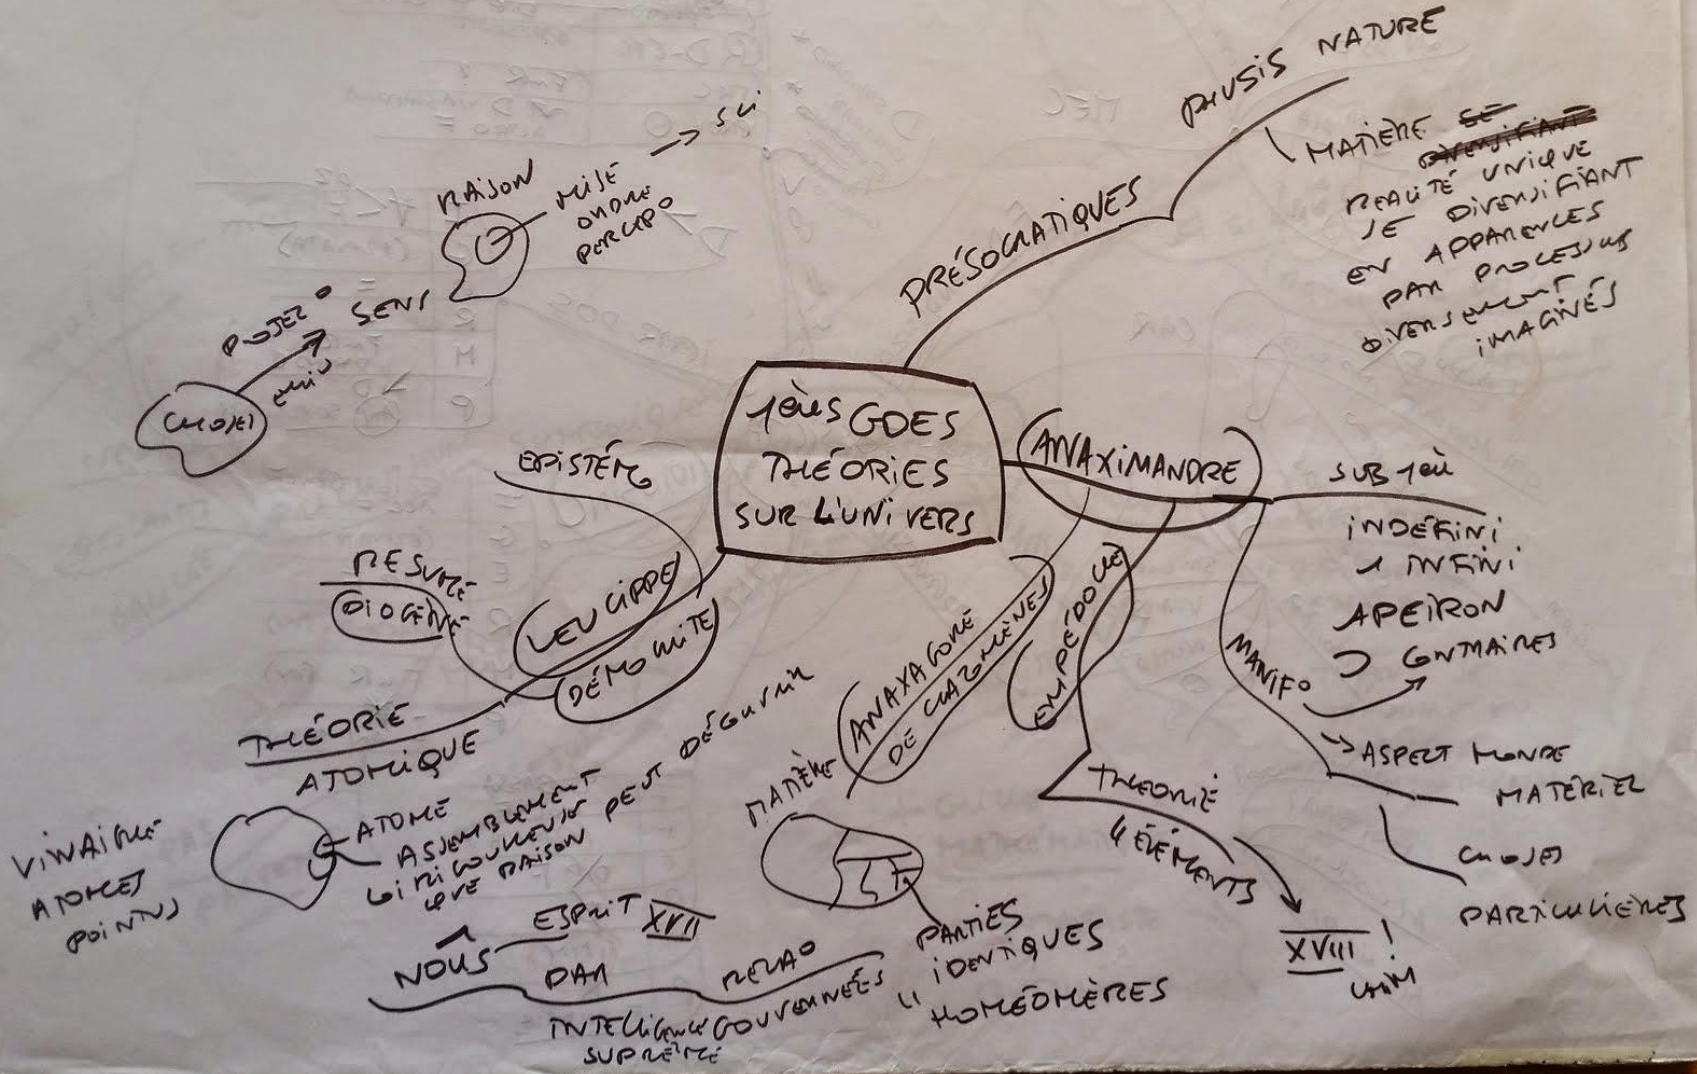 1ères GDES
THÉORIES
SUR L'UNIVERS
PRÉSOCRATIQUES
PHUSIS NATURE
MATIÈRE SE
DIVERSIFIANT
REALITÉ UNIQUE
SE DIVERSIFIANT
EN APPARENCES
PAR PROCESSUS
DIVERSEMENT
IMAGINÉS
ANAXIMANDRE
SUB 1ère
INDÉFINI
INFINI
APEIRON
CONTRAIRES
MANIF°
ASPECT MONDE
MATÉRIEL
CHOSES
PARTICULIÈRES
EMPÉDOCLE
THEORIE
4 ÉLÉMENTS
XVIII !
CHIM
ANAXAGORE
DE CLAZOMÈNES
MATIÈRE
PARTIES
IDENTIQUES
HOMÉOMÈRES
NOÛS
ESPRIT XVII
PAR
RELA°
GOUVERNÉES
INTELLIGENCE
SUPRÊME
LEUCIPPE
DÉMOCRITE
EPISTÉM°
RESUMÉ
DIOGÈNE
THÉORIE
ATOMIQUE
ATOME
ASSEMBLEMENT
QUE RAISON PEUT DÉCOUVRIR
VINAIGRE
ATOMES
POINTUS
CHOSES
PROJET°
EMI°
SENS
RAISON
MISE
ORDRE
PERCEP°
→ SCI